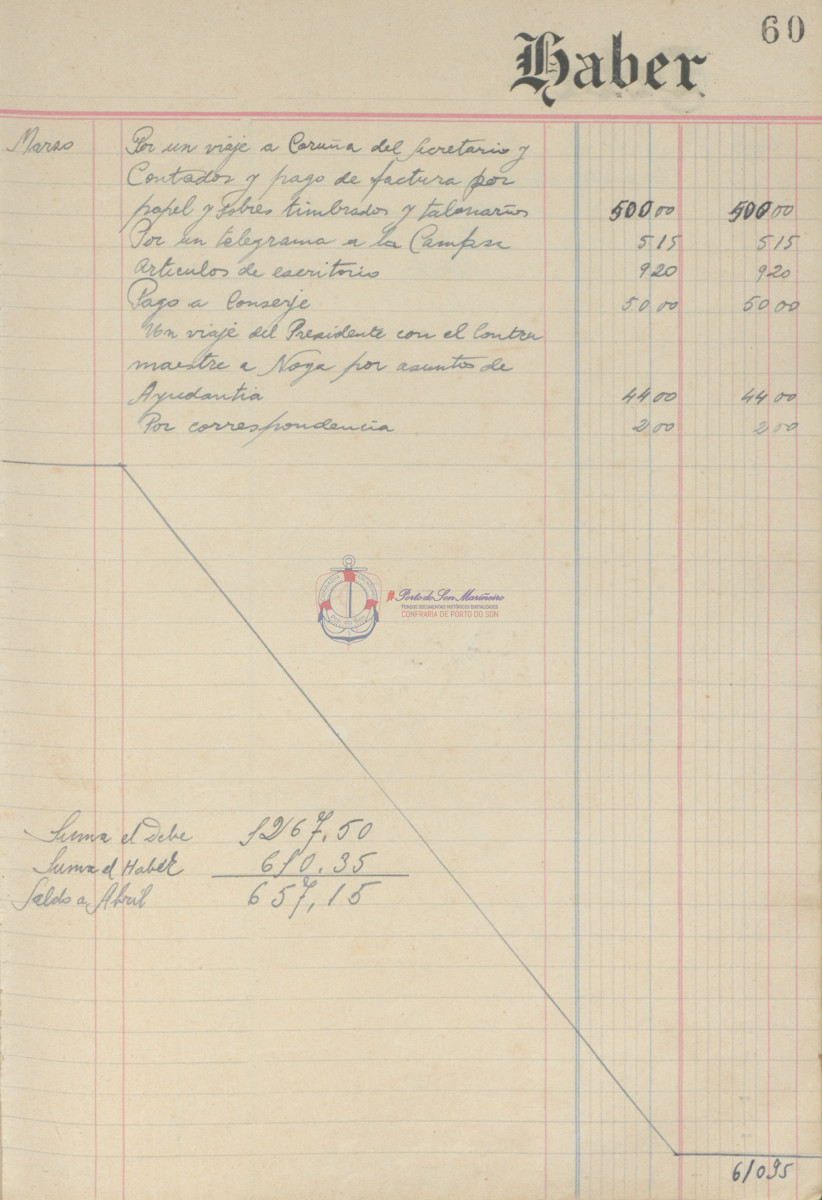 60
Haber
Marzo Por un viaje a Coruña del Secretario y
Contador y pago de factura por
papel y sobres timbrados y talonarios 500 00 500 00
Por un telegrama a la Campsa 5 15 5 15
Articulos de escritorio 9 20 9 20
Pago a Conserje 50 00 50 00
Un viaje del Presidente con el Contra
maestre a Noya por asuntos de
Ayudantia 44 00 44 00
Por correspondencia 2 00 2 00
Porto do Son Mariñeiro
FONDOS DOCUMENTAIS HISTÓRICOS DIXITALIZADOS
CONFRARÍA DE PORTO DO SON
Suma el Debe 1267,50
Suma el Haber 610.35
Saldo a Abril 657,15
610 35